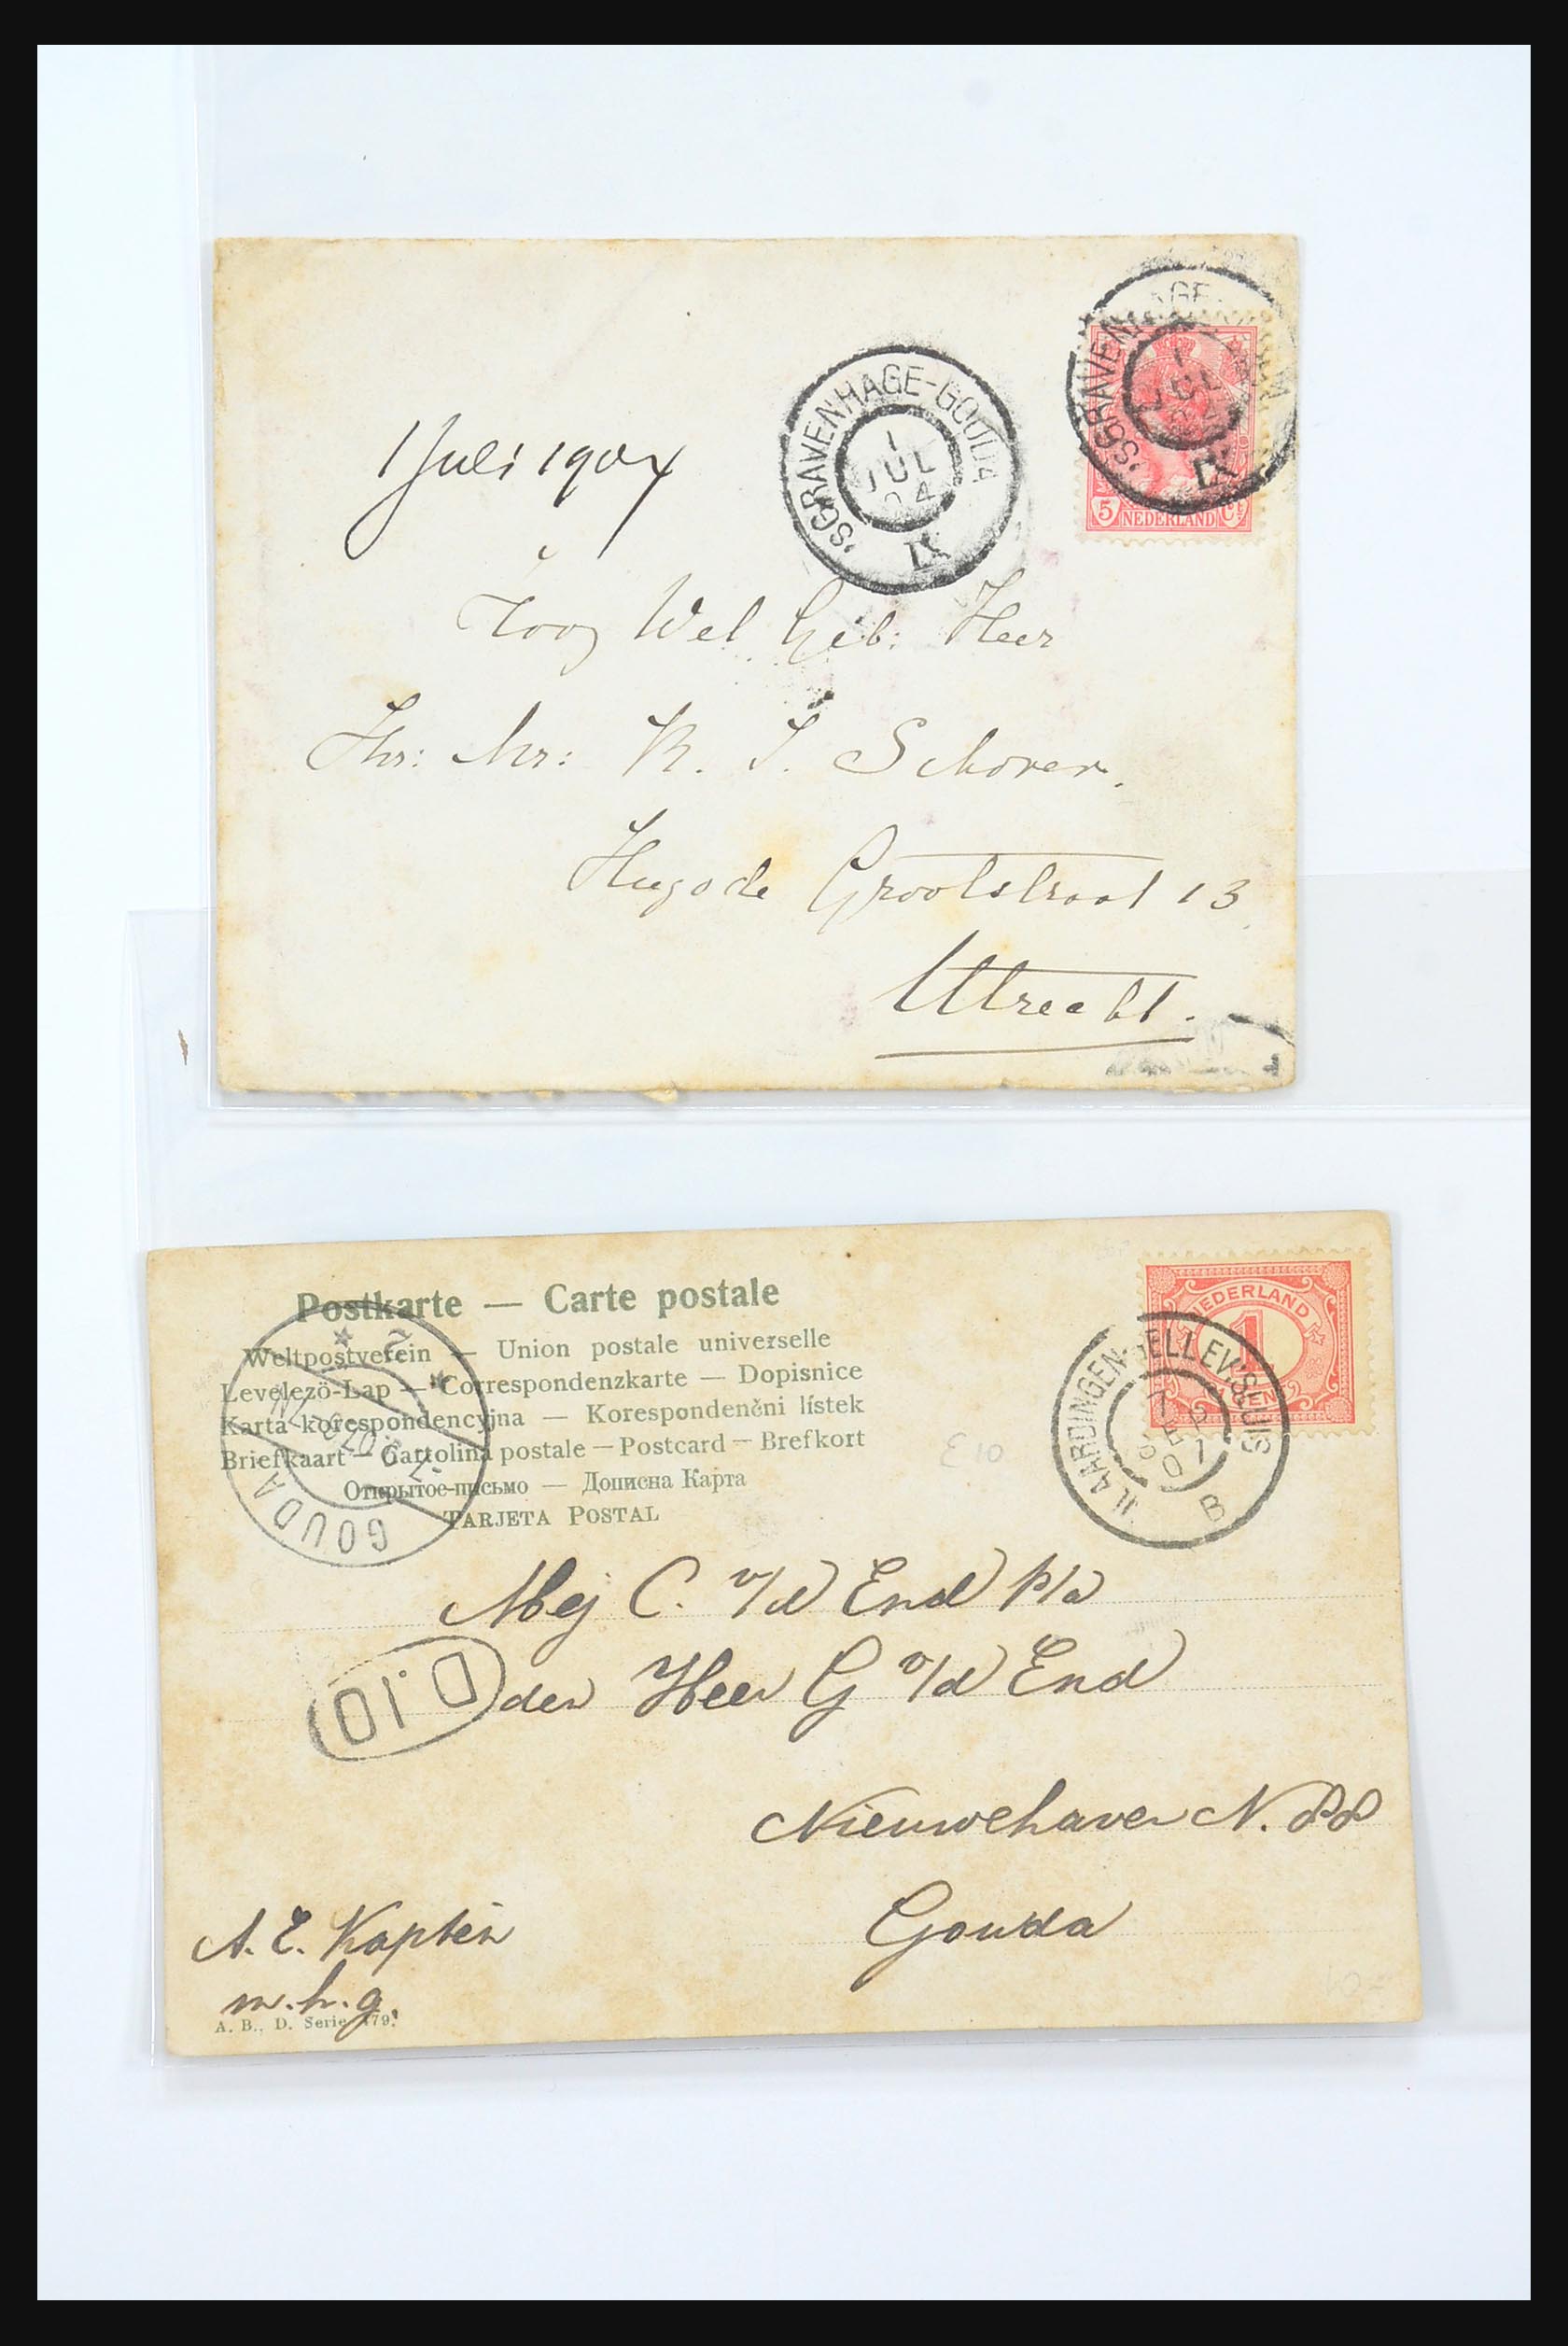 'SGRAVENHAGE-GOUDA
1
JUL
04
IX
'SGRAVENHAGE
1
JUL
04
IX
5 NEDERLAND Ct
1 Juli 1904
Hoog Wel Geb: Heer
Jhr: Mr: R. J. Schorer.
Hugo de Grootstraat 13
Utrecht.
Postkarte — Carte postale
Weltpostverein — Union postale universelle
Levelezö-Lap — Correspondenzkarte — Dopisnice
Karta korespondencyjna — Korespondenčni lístek
Briefkaart — Cartolina postale — Postcard — Brefkort
Открытое-письмо — Дописна Карта
TARJETA POSTAL
GOUDA
NEDERLAND
1
CENT
VLAARDINGEN-HELLEVSLUIS
7 SEP 07
B
E 10
Mej C. v/d End p/a
den Heer G v/d End
D.10
Nieuwehaven N. 88
Gouda
A. E. Kaptein
m.h.g.
A. B., D. Serie 179.